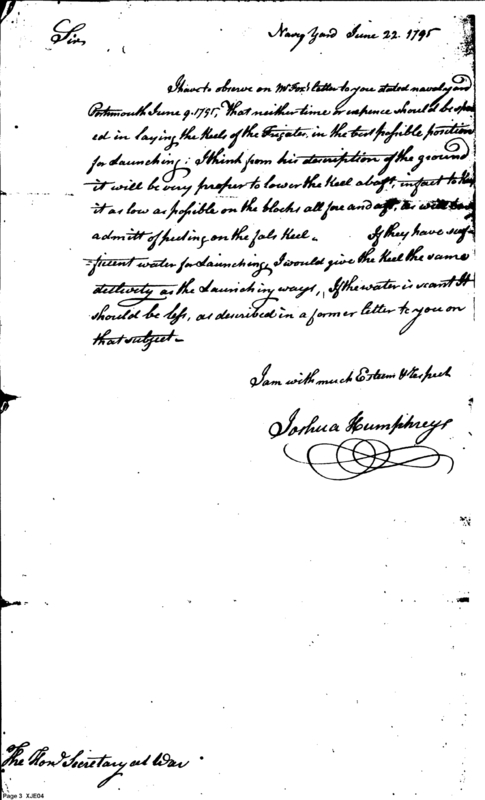 Navy Yard June 22. 1795
Sir,
I have to observe on Mr Fox's letter to you dated naval yard
Portsmouth June 9. 1795, That neither time or expence should be spa
ed in laying the Keels of the Frigates, in the best possible position
for Launching: I think from his description of the ground
it will be very proper to lower the Keel abaft, in fact to Keep
it as low as possible on the blocks all fore and aft, as will
admitt of puting on the fals Keel. If they have suf
ficient water for Launching, I would give the Keel the same
declivity as the Launching ways, If the water is scant It
should be less, as described in a former letter to you on
that subject.
I am with much Esteem & respect
Joshua Humphreys
The Honl Secretary at War
Page 3 XJE04